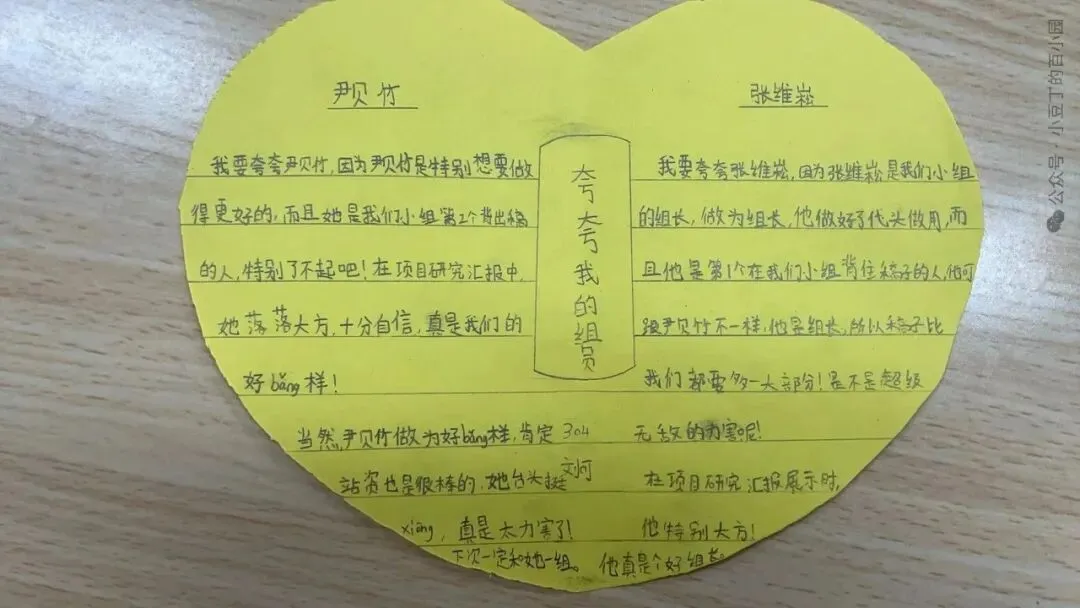 尹贝竹
我要夸夸尹贝竹，因为尹贝竹是特别想要做
得更好的，而且她是我们小组第2个背出稿
的人，特别了不起吧！在项目研究汇报中，
她落落大方，十分自信，真是我们的
好bǎng样！
当然，尹贝竹做为好bǎng样，肯定
站资也是很棒的，她台头挺
xiōng，真是太力害了！
下次一定和她一组。
夸夸我的组员
304
张维崧
我要夸夸张维崧，因为张维崧是我们小组
的组长，做为组长，他做好了代头做用，而
且他是第1个在我们小组背住稿子的人，他可
跟尹贝竹不一样，他是组长，所以稿子比
我们都要多一大部分！是不是超级
无敌的力害呢！
在项目研究汇报展示时，
他特别大方！
他真是个好组长。
公众号·小豆丁的百小园